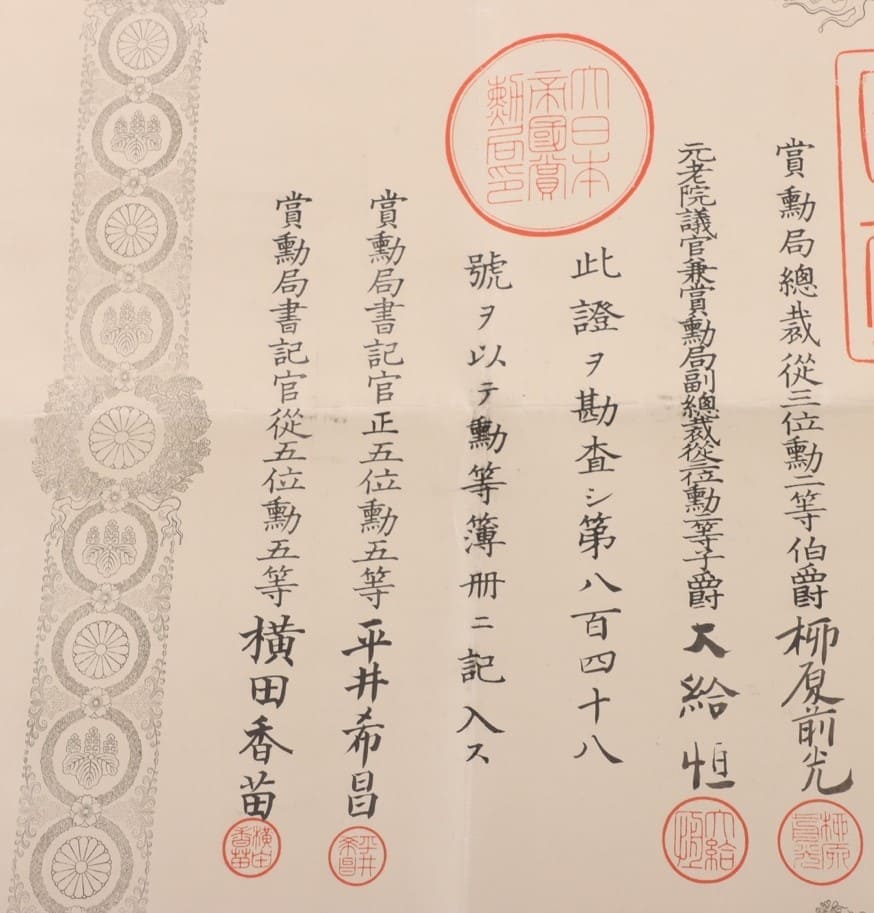 賞勳局總裁從三位勳二等伯爵柳原前光
元老院議官兼賞勳局副總裁從三位勳二等子爵大給恒
大日本
帝國賞
勲局印
此證ヲ勘査シ第八百四十八
號ヲ以テ勳等簿册ニ記入ス
賞勳局書記官正五位勳五等平井希昌
賞勳局書記官從五位勳五等橫田香苗
柳原
前光
大給
恒
平井
希昌
横田
香苗